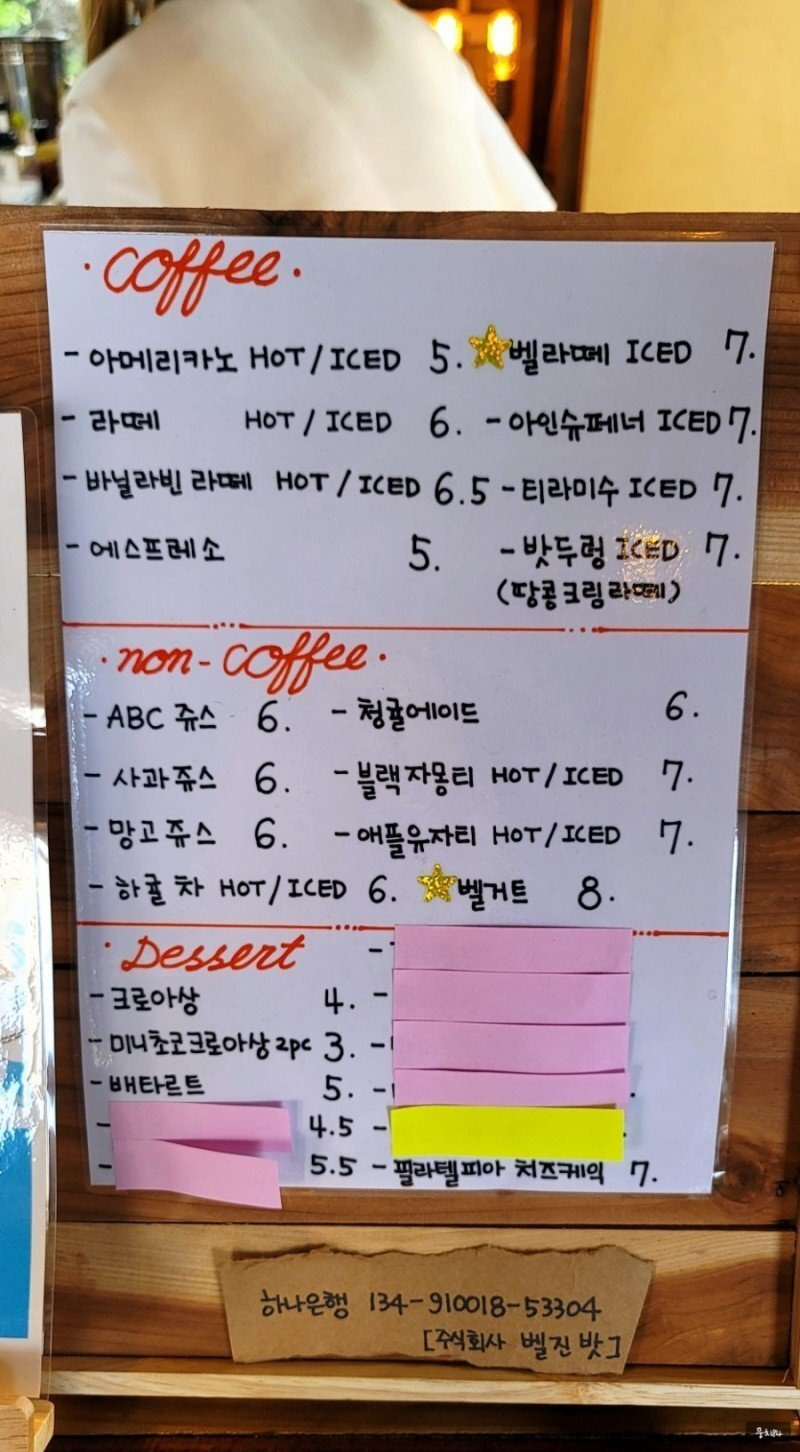 · Coffee ·
- 아메리카노 HOT / ICED 5.
- 라떼 HOT / ICED 6.
- 바닐라빈 라떼 HOT / ICED 6.5
- 에스프레소 5.
벨라떼 ICED 7.
- 아인슈페너 ICED 7.
- 티라미수 ICED 7.
- 밧두렁 ICED 7.
(땅콩크림라떼)
· non-coffee ·
- ABC 쥬스 6.
- 사과쥬스 6.
- 망고쥬스 6.
- 하귤차 HOT/ICED 6.
- 청귤에이드 6.
- 블랙자몽티 HOT/ICED 7.
- 애플유자티 HOT/ICED 7.
벨거트 8.
· Dessert
- 크로아상 4.
- 미니초코크로아상 2pc 3.
- 배타르트 5.
- 4.5
- 5.5
- 필라텔피아 치즈케익 7.
하나은행 134-910018-53304
[주식회사 벨진밧]